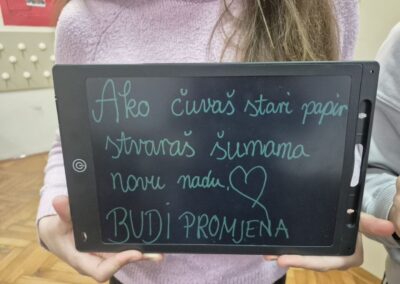 Ako čuvaš stari papir
stvaraš šumama
novu nadu.
BUDI PROMJENA